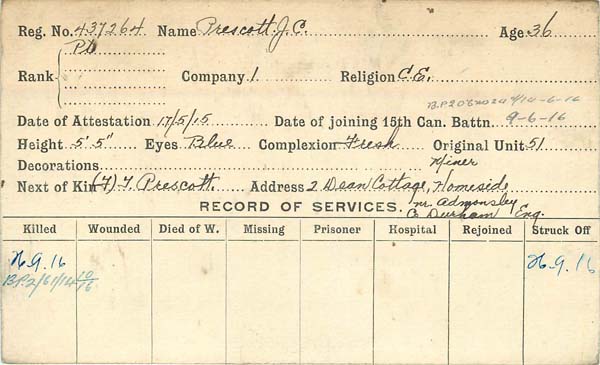 Reg. No. 437264 Name Prescott. J. C. Age 36
Rank Pte Company 1 Religion C.E.
B.P.2 9/14-6-16
Date of Attestation 17/5/15 Date of joining 15th Can. Battn. 9-6-16
Height 5' 5" Eyes Blue Complexion Fresh Original Unit 51
Decorations Miner
Next of Kin (F) T. Prescott. Address 2 Dean Cottage, Homeside
nr. Admonsley
RECORD OF SERVICES. C. Durham Eng.
Killed Wounded Died of W. Missing Prisoner Hospital Rejoined Struck Off
26.9.16 26.9.16
B.P.2/61/14 10/16